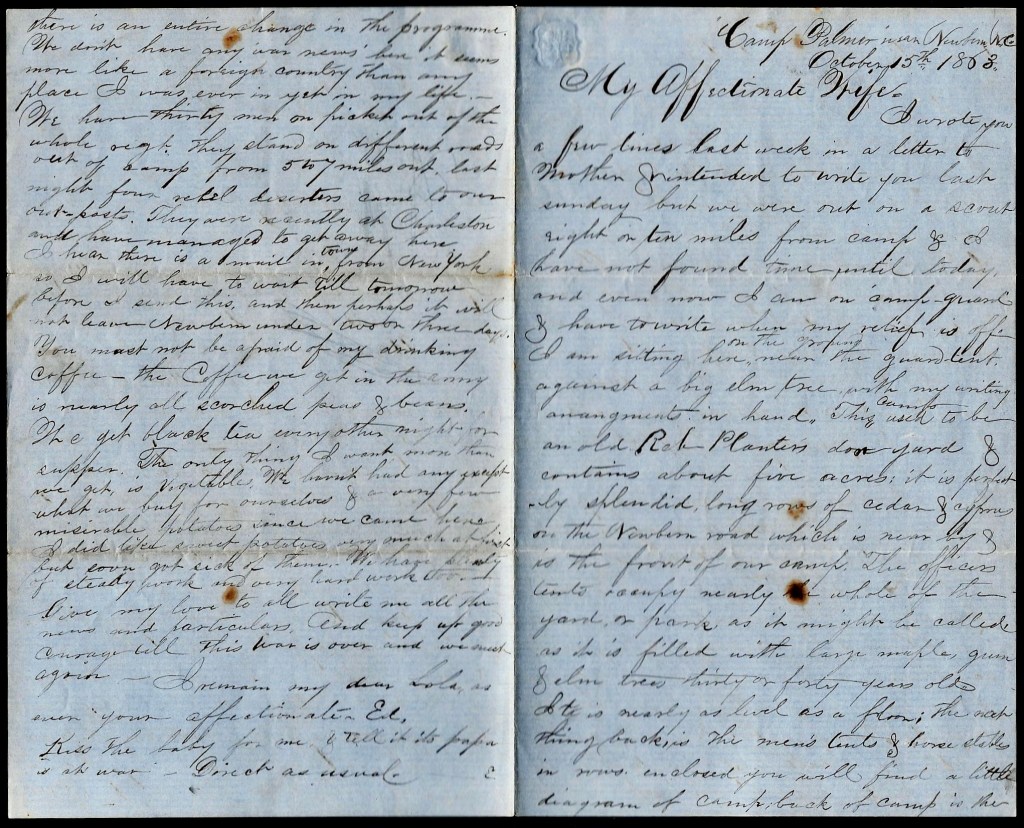 "Camp Palmer" near Newbern N.C.
October 15th 1863.
My Affectionate Wife.
I wrote you
a few lines last week in a letter to
Mother & intended to write you last
sunday but we were out on a scout
eight or ten miles from camp & I
have not found time until today,
and even now I am on camp-guard
& have to write when my relief is off.
I am sitting here, on the ground near the guard tent,
against a big elm tree, with my writing
arrangments in hand. This camp used to be
an old Rich Planters door yard &
contains about five acres; it is perfect
-ly splendid, long rows of cedar & cyprus
on the Newbern road which is near by &
is the front of our camp. The officers
tents occupy nearly the whole of the
yard, or park as it might be called
as it is filled with large maples, gum
& elm trees thirty or forty years old
It is nearly as level as a floor; the next
thing back, is the men's tents & horse stables
in rows. enclosed you will find a little
diagram of camp; back of camp is the
there is an entire change in the programme.
We don't have any war news here it seems
more like a foreign country than any
place I was ever in yet in my life.—
We have thirty men on picket out of the
whole regt. They stand on different roads
out of camp from 5 to 7 miles out. last
night four rebel deserters came to our
out-posts. They were recently at Charleston
and have managed to get away here
I hear there is a mail in town from New York
so, I will have to wait till tomorrow
before I send this, and then perhaps it will
not leave Newbern under two or three days.
You must not be afraid of my drinking
coffee — the Coffee we get in the army
is nearly all scorched peas & beans.
We get black tea every other night for
supper. The only thing I want more than
we get, is Vigetable, We havn't had any except
what we buy for ourselves & a very few
miserable potatoes since we came here
I did like sweet potatoes very much at first
but soon got sick of them. We have plenty
of steady work and very hard work too—
Give my love to all write me all the
news and particulars, And keep up good
courage till this War is over and we meet
again — I remain my dear Lola, as
ever your affectionate Ed.
Kiss the baby for me & tell it its papa
is at war — Direct as usual.